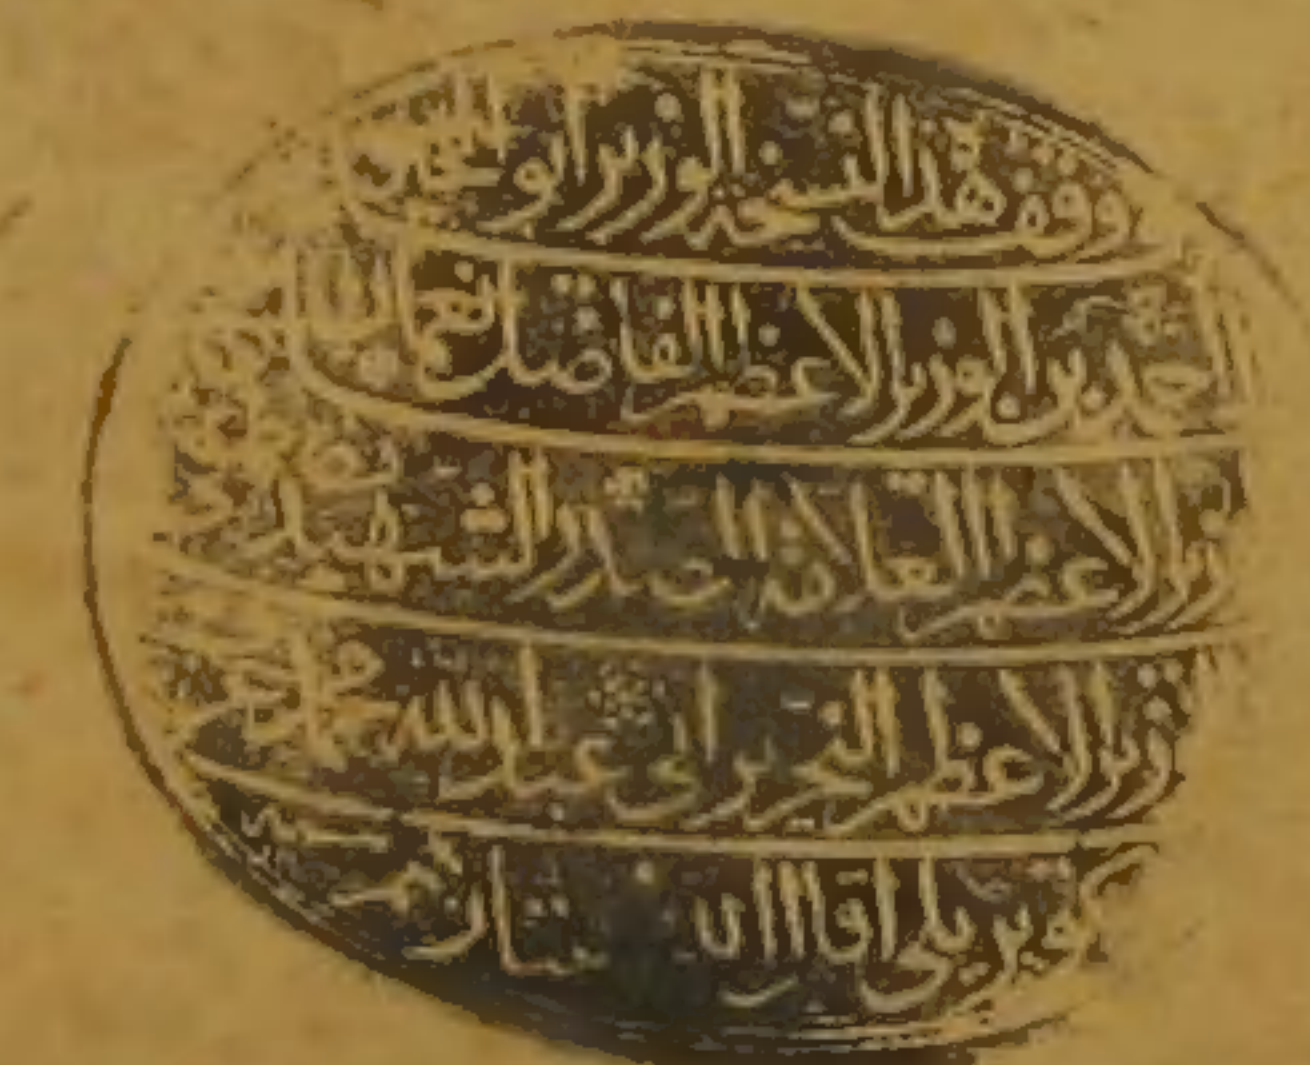 وقف هذا النسخة الوزير ابو العباس
احمد بن الوزير الاعظم الفاضل نعمان
الوزير الاعظم العلامة الصدر الشهيد
الوزير الاعظم النحرير ابي عبد الله محمد
كوپريلي اقال الله عثارهم